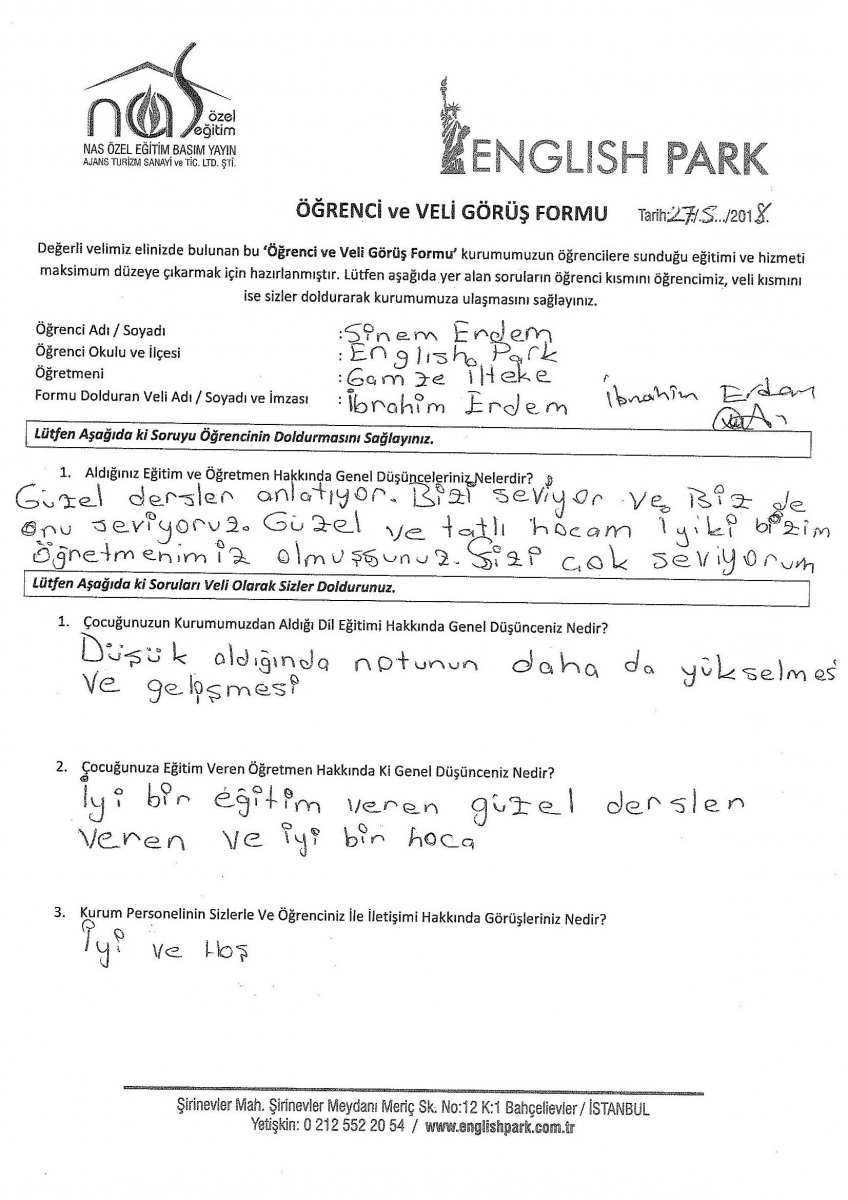 nas özel eğitim
NAS ÖZEL EĞİTİM BASIM YAYIN
AJANS TURİZM SANAYİ ve TİC. LTD. ŞTİ.
ENGLISH PARK
ÖĞRENCİ ve VELİ GÖRÜŞ FORMU Tarih:27/5.../2018.
Değerli velimiz elinizde bulunan bu ‘Öğrenci ve Veli Görüş Formu’ kurumumuzun öğrencilere sunduğu eğitimi ve hizmeti
maksimum düzeye çıkarmak için hazırlanmıştır. Lütfen aşağıda yer alan soruların öğrenci kısmını öğrencimiz, veli kısmını
ise sizler doldurarak kurumumuza ulaşmasını sağlayınız.
Öğrenci Adı / Soyadı : Sinem Erdem
Öğrenci Okulu ve İlçesi : English Park
Öğretmeni : Gamze ilteke
Formu Dolduran Veli Adı / Soyadı ve İmzası : İbrahim Erdem İbrahim Erdam
Lütfen Aşağıda ki Soruyu Öğrencinin Doldurmasını Sağlayınız.
1. Aldığınız Eğitim ve Öğretmen Hakkında Genel Düşünceleriniz Nelerdir?
Güzel dersler anlatıyor. Bizi seviyor ve Biz de
onu seviyoruz. Güzel ve tatlı hocam iyiki bizim
öğretmenimiz olmuşsunuz. Sizi çok seviyorum
Lütfen Aşağıda ki Soruları Veli Olarak Sizler Doldurunuz.
1. Çocuğunuzun Kurumumuzdan Aldığı Dil Eğitimi Hakkında Genel Düşünceniz Nedir?
Düşük aldığında notunun daha da yükselmesi
ve gelişmesi
2. Çocuğunuza Eğitim Veren Öğretmen Hakkında Ki Genel Düşünceniz Nedir?
İyi bir eğitim veren güzel dersler
veren ve iyi bir hoca
3. Kurum Personelinin Sizlerle Ve Öğrenciniz İle İletişimi Hakkında Görüşleriniz Nedir?
İyi ve Hoş
Şirinevler Mah. Şirinevler Meydanı Meriç Sk. No:12 K:1 Bahçelievler / İSTANBUL
Yetişkin: 0 212 552 20 54 / www.englishpark.com.tr